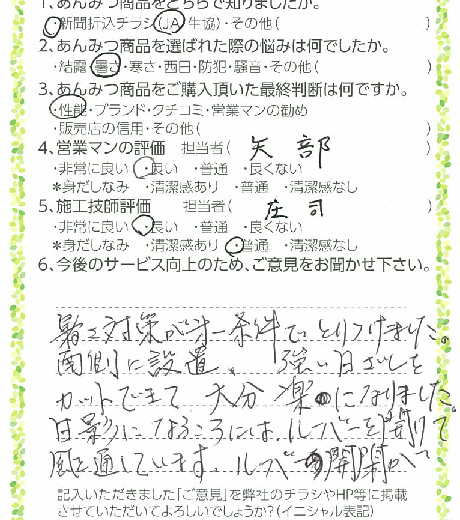 1、あんみつ商品をどちらで知りましたか。
・新聞折込チラシ(JA、生協)・その他( )
2、あんみつ商品を選ばれた際の悩みは何でしたか。
・結露・暑さ・寒さ・西日・防犯・騒音・その他( )
3、あんみつ商品をご購入頂いた最終判断は何ですか。
・性能・ブランド・クチコミ・営業マンの勧め
・販売店の信用・その他( )
4、営業マンの評価 担当者( 矢部 )
・非常に良い ・良い ・普通 ・良くない
*身だしなみ ・清潔感あり ・普通 ・清潔感なし
5、施工技師評価 担当者( 庄司 )
・非常に良い ・良い ・普通 ・良くない
*身だしなみ ・清潔感あり ・普通 ・清潔感なし
6、今後のサービス向上のため、ご意見をお聞かせ下さい。
暑さ対策が第一条件でとりつけました。
南側に設置、強い日ざしを
カットできて大分楽になりました。
日影になるころには、ルーバーを開けて
風を通しています。ルーバーの開閉が
記入いただきました「ご意見」を弊社のチラシやHP等に掲載
させていただいてよろしいでしょうか?(イニシャル表記)